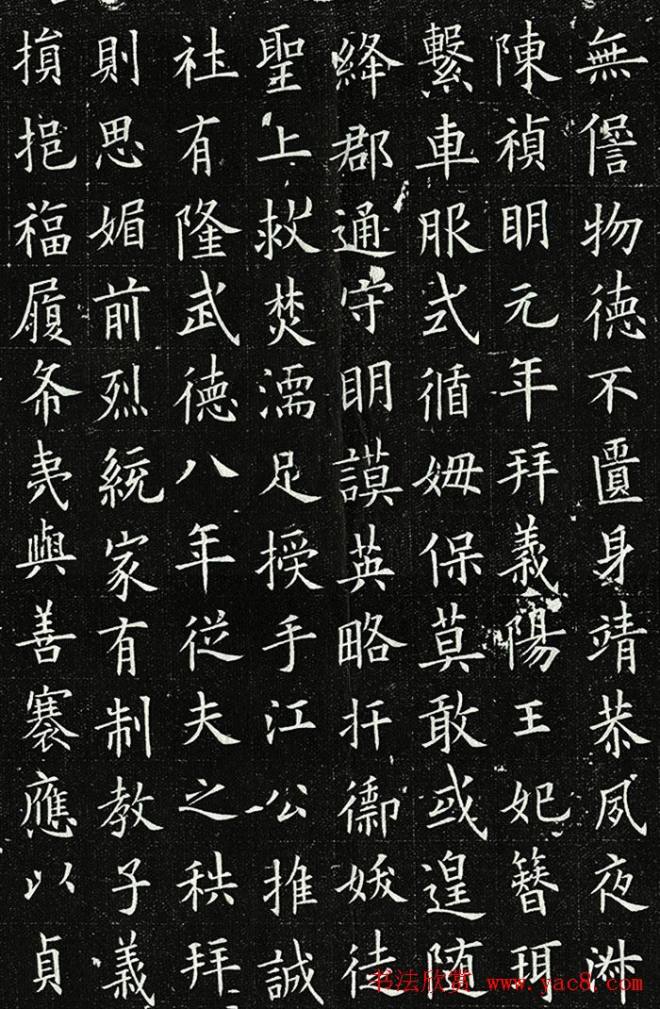 無愆物德不匱身靖恭夙夜淑
陳禎明元年拜義陽王妃簪珥
繫車服式循姆保莫敢或遑随
絳郡通守明謨英略扞禦妖徒
聖上救焚濡足授手江公推誠
社有隆武德八年從夫之秩拜
則思媚前烈統家有制教子義
損挹福履希夷與善褰應以貞
书法欣赏 www.yac8.com